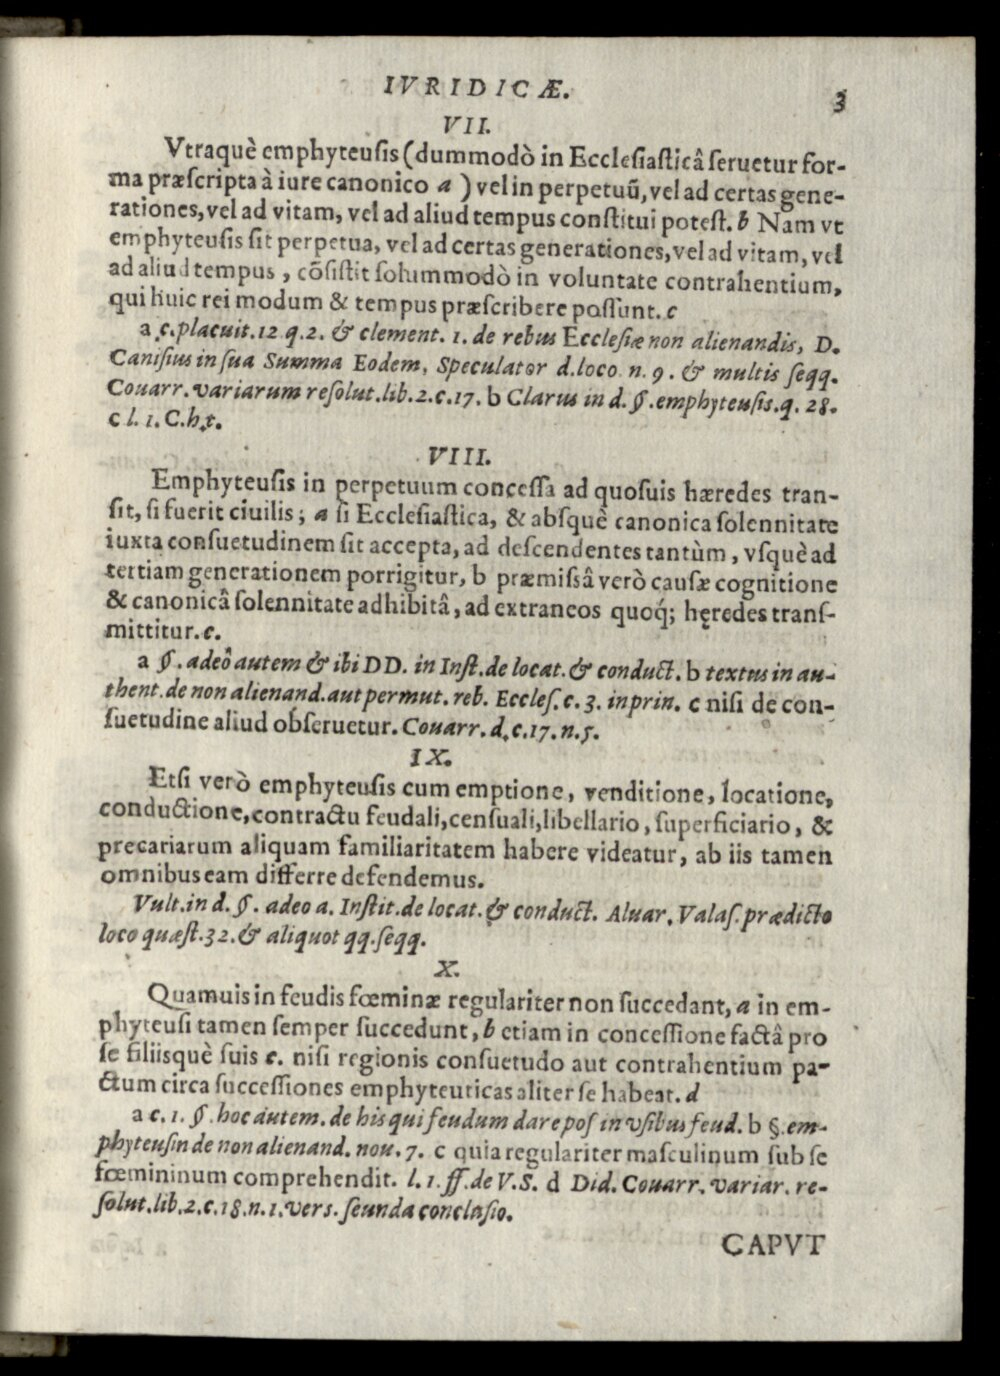 IVRIDICÆ.
3
VII.
Vtraquè emphyteusis (dummodò in Ecclesiasticâ seruetur for-
ma præscripta à iure canonico a ) vel in perpetuũ, vel ad certas gene-
rationes, vel ad vitam, vel ad aliud tempus constitui potest. b Nam vt
emphyteusis sit perpetua, vel ad certas generationes, vel ad vitam, vel
ad aliud tempus , cõsistit solummodò in voluntate contrahentium,
qui huic rei modum & tempus præscribere possunt. c
a c. placuit. 12 q. 2. & clement. 1. de rebus Ecclesiæ non alienandis, D.
Canisius in sua Summa Eodem, Speculator d. loco n. 9 . & multis seqq.
Couarr. variarum resolut. lib. 2. c. 17. b Clarus in d. §. emphyteusis. q. 28.
c l. 1. C. h. t.
VIII.
Emphyteusis in perpetuum concessa ad quosuis hæredes tran-
sit, si fuerit ciuilis; a si Ecclesiastica, & absquè canonica solennitate
iuxta consuetudinem sit accepta, ad descendentes tantùm , vsquè ad
tertiam generationem porrigitur, b præmissâ verò causæ cognitione
& canonicâ solennitate adhibitâ, ad extraneos quoq́; hęredes trans-
mittitur. c.
a §. adeô autem & ibi DD. in Inst. de locat. & conduct. b textus in au-
thent. de non alienand. aut permut. reb. Eccles. c. 3. in prin. c nisi de con-
suetudine aliud obseruetur. Couarr. d. c. 17. n. 5.
IX.
Etsi verò emphyteusis cum emptione, venditione, locatione,
conductione, contractu feudali, censuali, libellario, superficiario, &
precariarum aliquam familiaritatem habere videatur, ab iis tamen
omnibus eam differre defendemus.
Vult. in d. §. adeo a. Instit. de locat. & conduct. Aluar. Valas. prædicto
loco quæst. 32. & aliquot qq. seqq.
X.
Quamuis in feudis fœminæ regulariter non succedant, a in em-
phyteusi tamen semper succedunt, b etiam in concessione factâ pro
se filiisquè suis c. nisi regionis consuetudo aut contrahentium pa-
ctum circa successiones emphyteuticas aliter se habeat. d
a c. 1. §. hoc autem. de his qui feudum dare pos in vsibus feud. b §. em-
phyteusin de non alienand. nou. 7. c quia regulariter masculinum sub se
fœmininum comprehendit. l. 1. ff. de V. S. d Did. Couarr. variar. re-
solut. lib. 2. c. 18. n. 1. vers. seunda conclusio.
CAPVT